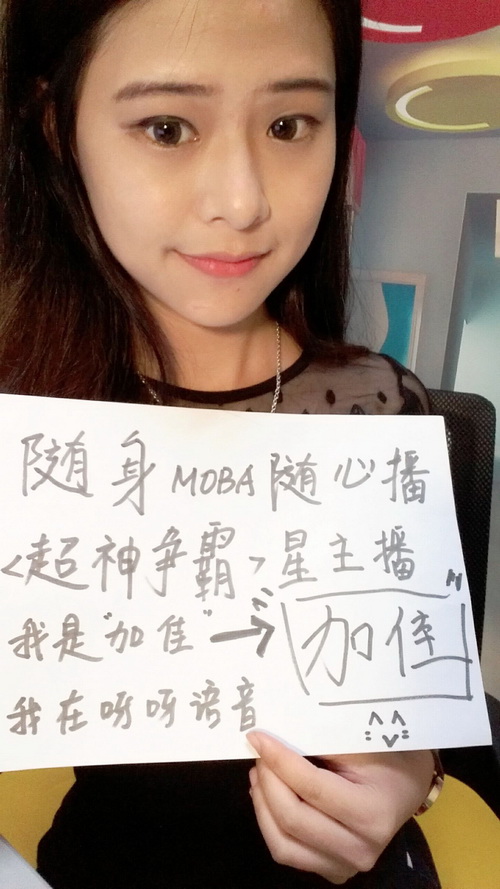 随身MOBA随心播
<超神争霸>星主播
我是"加佳"→加佳
我在呀呀语音